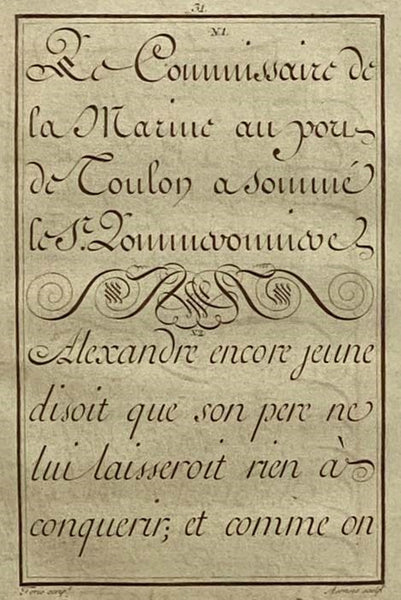 31
N.1.
Le Commissaire de
la Marine au port
de Toulon a sommé
le Sr.
N.2.
Alexandre encore jeune
disoit que son pere ne
lui laisseroit rien à
conquerir; et comme on